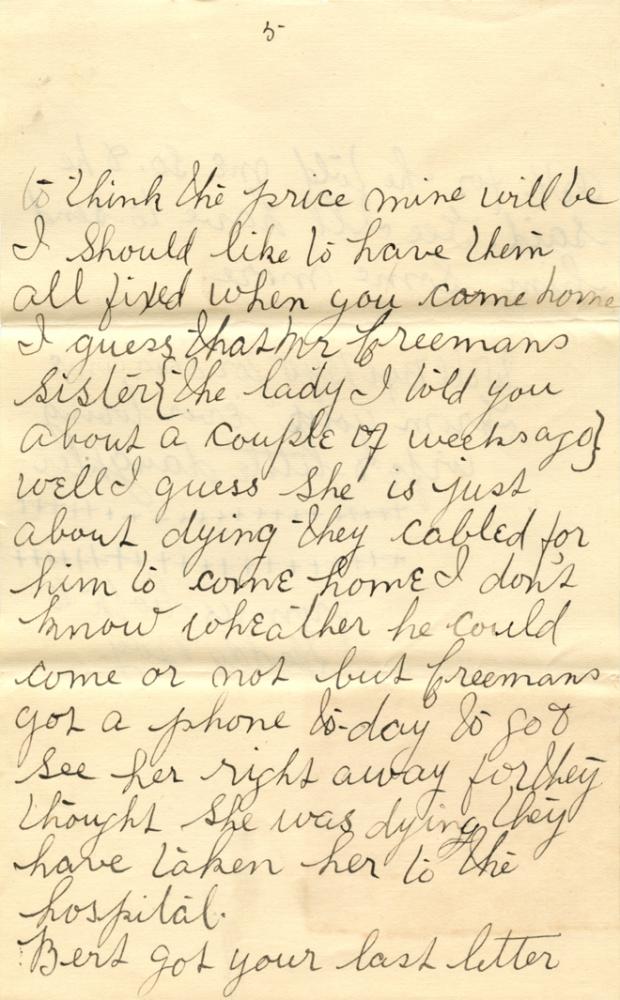 5
to think the price mine will be
I should like to have them
all fixed when you come home
I guess that Mr Freemans
sister {the lady I told you
about a couple of weeks ago}
well I guess she is just
about dying they cabled for
him to come home I don't
know wheather he could
come or not but Freemans
got a phone to-day to go &
see her right away for they
thought she was dying they
have taken her to the
hospital.
Bert got your last letter